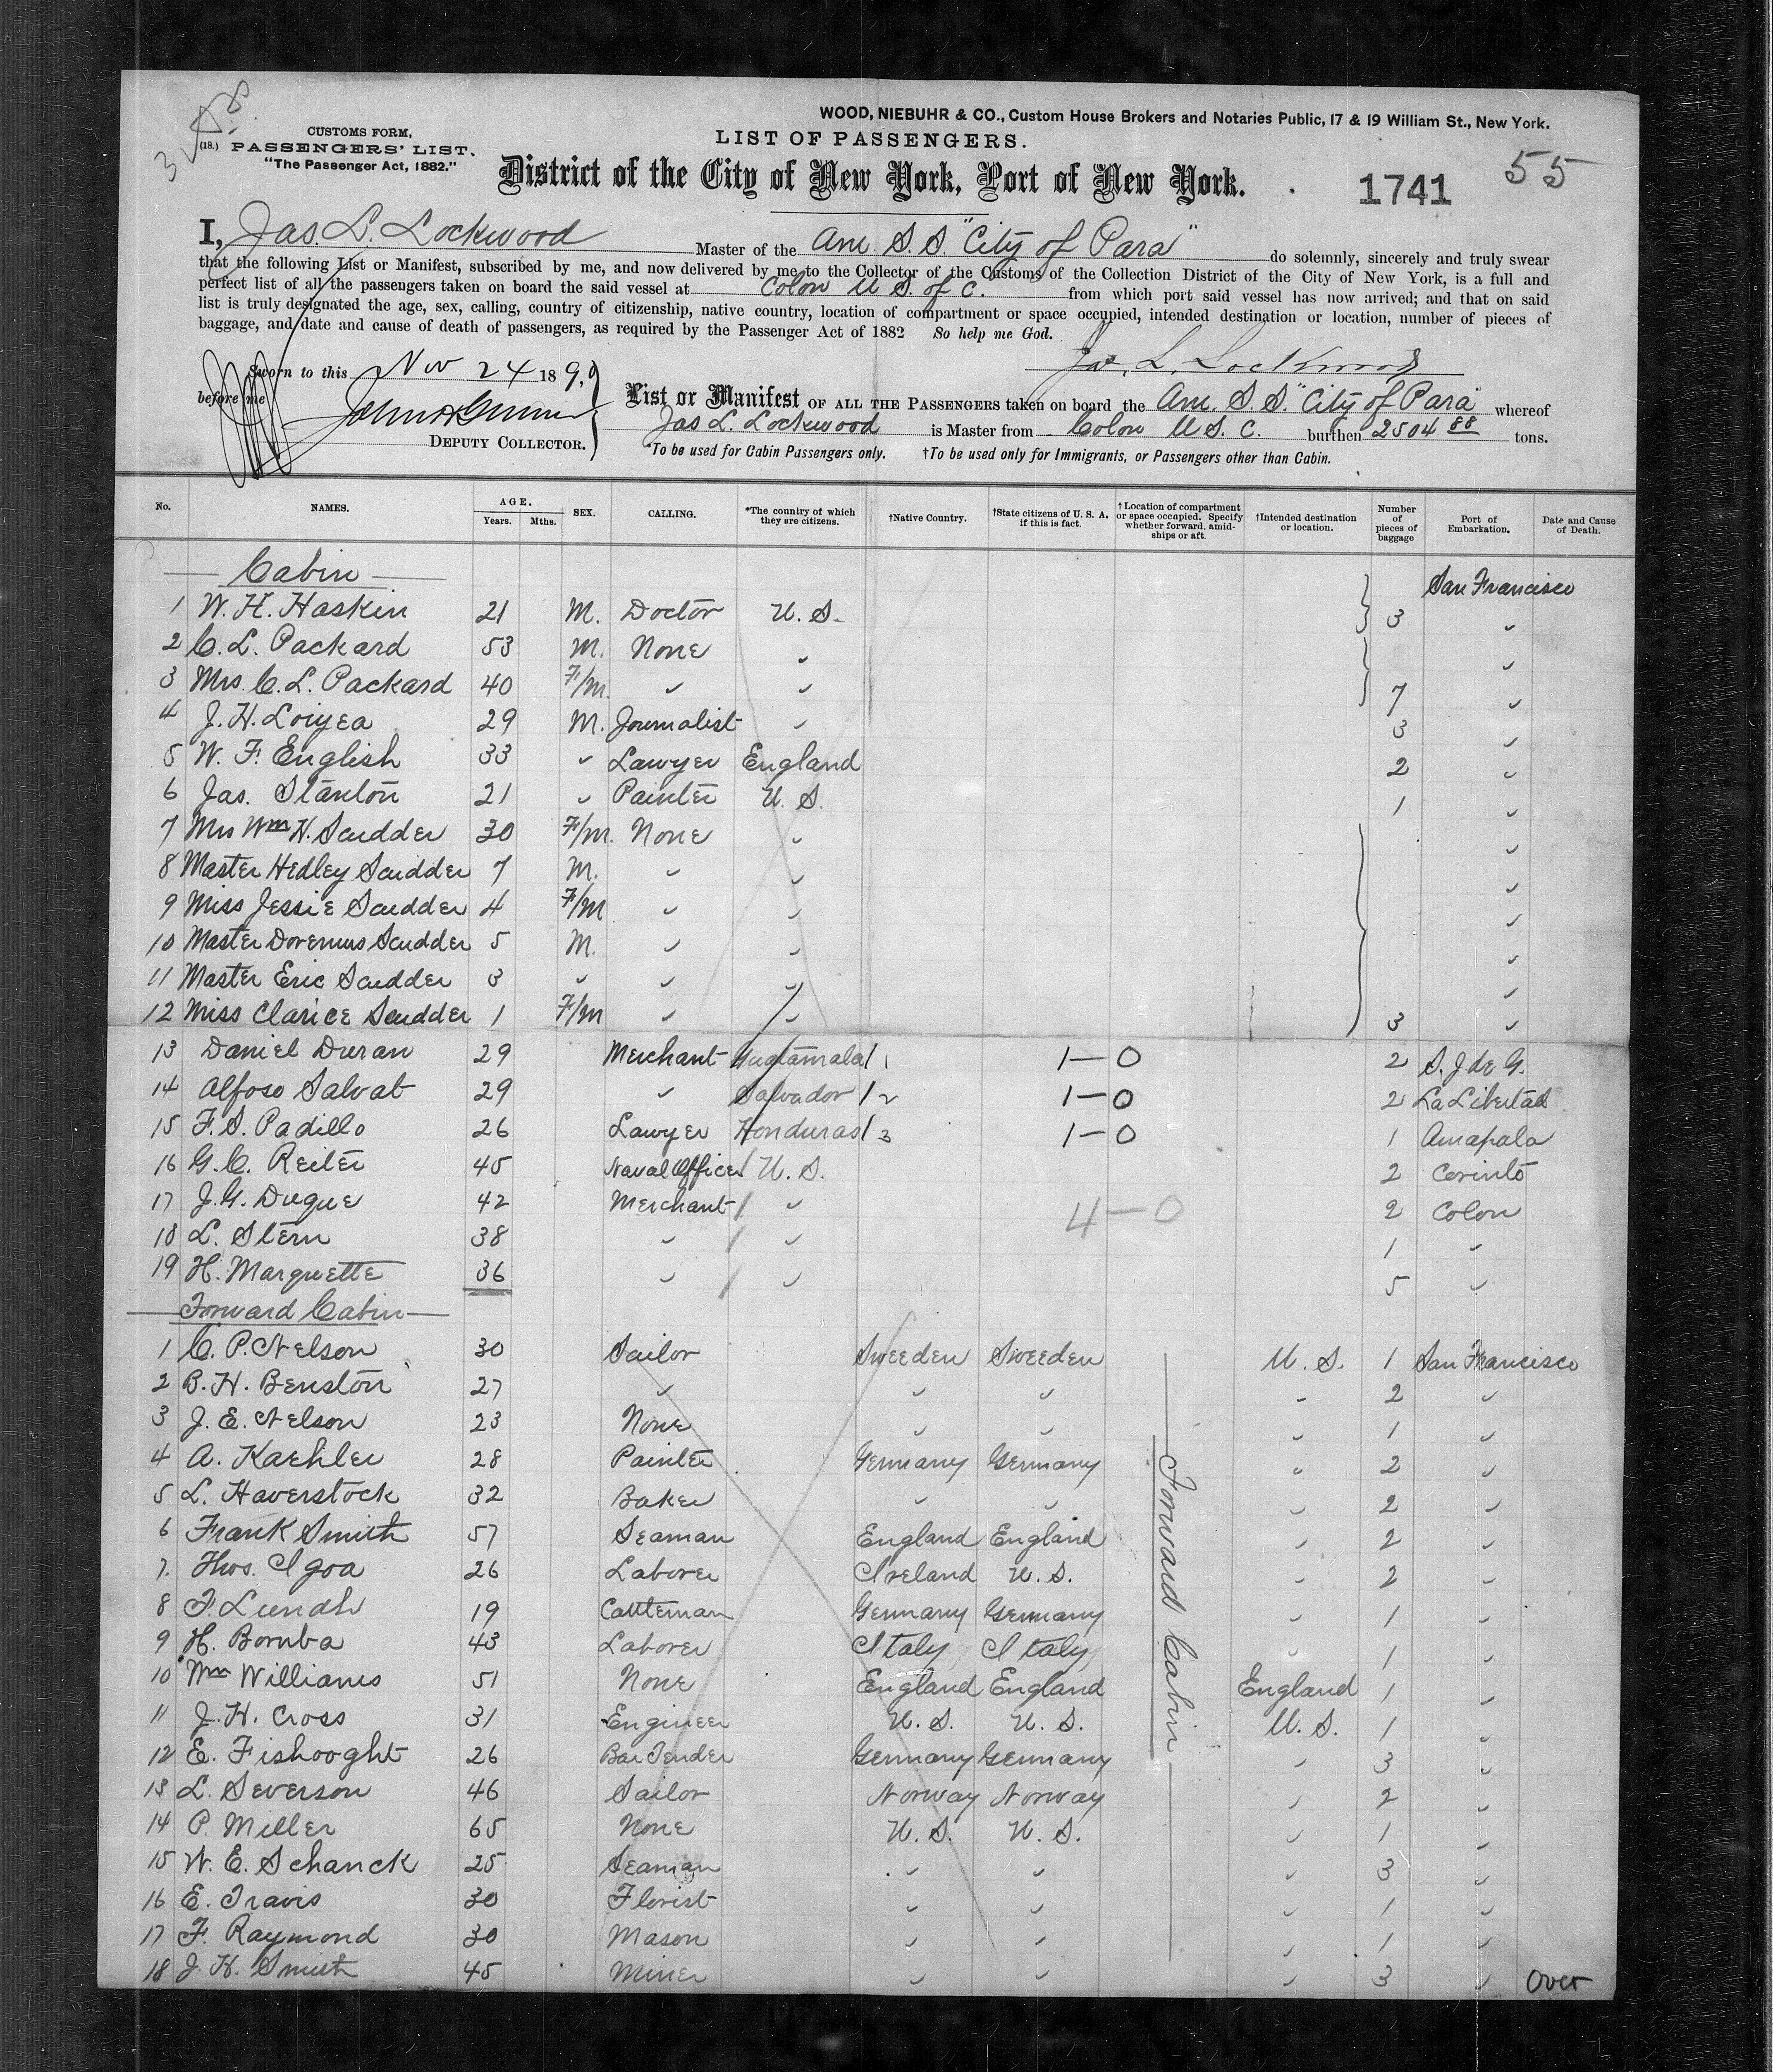 WOOD, NIEBUHR & CO., Custom House Brokers and Notaries Public, 17 & 19 William St., New York.
CUSTOMS FORM,
(18.) PASSENGERS' LIST.
"The Passenger Act, 1882."
LIST OF PASSENGERS.
District of the City of New York, Port of New York.
1741
55
I, Jas. L. Lockwood Master of the Am. S. S. "City of Para" do solemnly, sincerely and truly swear
that the following List or Manifest, subscribed by me, and now delivered by me to the Collector of the Customs of the Collection District of the City of New York, is a full and
perfect list of all the passengers taken on board the said vessel at Colon U S. of C. from which port said vessel has now arrived; and that on said
list is truly designated the age, sex, calling, country of citizenship, native country, location of compartment or space occupied, intended destination or location, number of pieces of
baggage, and date and cause of death of passengers, as required by the Passenger Act of 1882 So help me God.
Jas. L. Lockwood
Sworn to this Nov 24 189,0
before me
DEPUTY COLLECTOR.
List or Manifest OF ALL THE PASSENGERS taken on board the Am. S. S. "City of Para" whereof
Jas L. Lockwood is Master from Colon U S. C. burthen 2504 88 tons.
*To be used for Cabin Passengers only. †To be used only for Immigrants, or Passengers other than Cabin.
No. NAMES. AGE. Years. Mths. SEX. CALLING. *The country of which they are citizens. †Native Country. †State citizens of U. S. A. if this is fact. †Location of compartment or space occupied. Specify whether forward, amidships or aft. †Intended destination or location. Number of pieces of baggage Port of Embarkation. Date and Cause of Death.
Cabin
1 W. H. Haskin 21 M. Doctor U. S. 3 San Francisco
2 C. L. Packard 53 M. None " "
3 Mrs. C. L. Packard 40 F/m. " " 7 "
4 J. H. Loiyea 29 M. Journalist " 3 "
5 W. F. English 33 " Lawyer England 2 "
6 Jas. Stanton 21 " Painter U. S. 1 "
7 Mrs Wm H. Scudder 30 F/m. None " "
8 Master Hedley Scudder 7 M. " " "
9 Miss Jessie Scudder 4 F/m " " "
10 Master Doremus Scudder 5 M. " " "
11 Master Eric Scudder 3 " " " "
12 Miss Clarice Scudder 1 F/m " " 3 "
13 Daniel Duran 29 Merchant Guatamala 1 1—0 2 S. J de G.
14 Alfoso Salvat 29 " Salvador 2 1—0 2 La Libertad
15 F. S. Padillo 26 Lawyer Honduras 3 1—0 1 Amapala
16 G. C. Reiter 45 Naval Officer U. S. 2 Corinto
17 J. G. Duque 42 Merchant " 4—0 2 Colon
18 L. Stern 38 " " 1 "
19 H. Marquette 36 " " 5 "
Forward Cabin
1 C. P. Nelson 30 Sailor Sweeden Sweeden U. S. 1 San Francisco
2 B. H. Benston 27 " " " " 2 "
3 J. E. Nelson 23 None " " " 1 "
4 A. Kaehler 28 Painter Germany Germany " 2 "
5 L. Haverstock 32 Baker " " " 2 "
6 Frank Smith 57 Seaman England England " 2 "
7. Thos. Igoa 26 Laborer Ireland U. S. " 2 "
8 F. Lundh 19 Cattleman Germany Germany " 1 "
9 H. Bomba 43 Laborer Italy Italy " 1 "
10 Wm Williams 51 None England England England 1 "
11 J. H. Cross 31 Engineer U. S. U. S. U. S. 1 "
12 E. Fishooght 26 Bar Tender Germany Germany " 3 "
13 L. Severson 46 Sailor Norway Norway " 2 "
14 P. Miller 65 None U. S. U. S. " 1 "
15 W. E. Schanck 25 Seaman " " " 3 "
16 E. Travis 30 Florist " " " 1 "
17 F. Raymond 30 Mason " " " 1 "
18 J. H. Smith 45 Miner " " " 3 "
Forward Cabin
Over